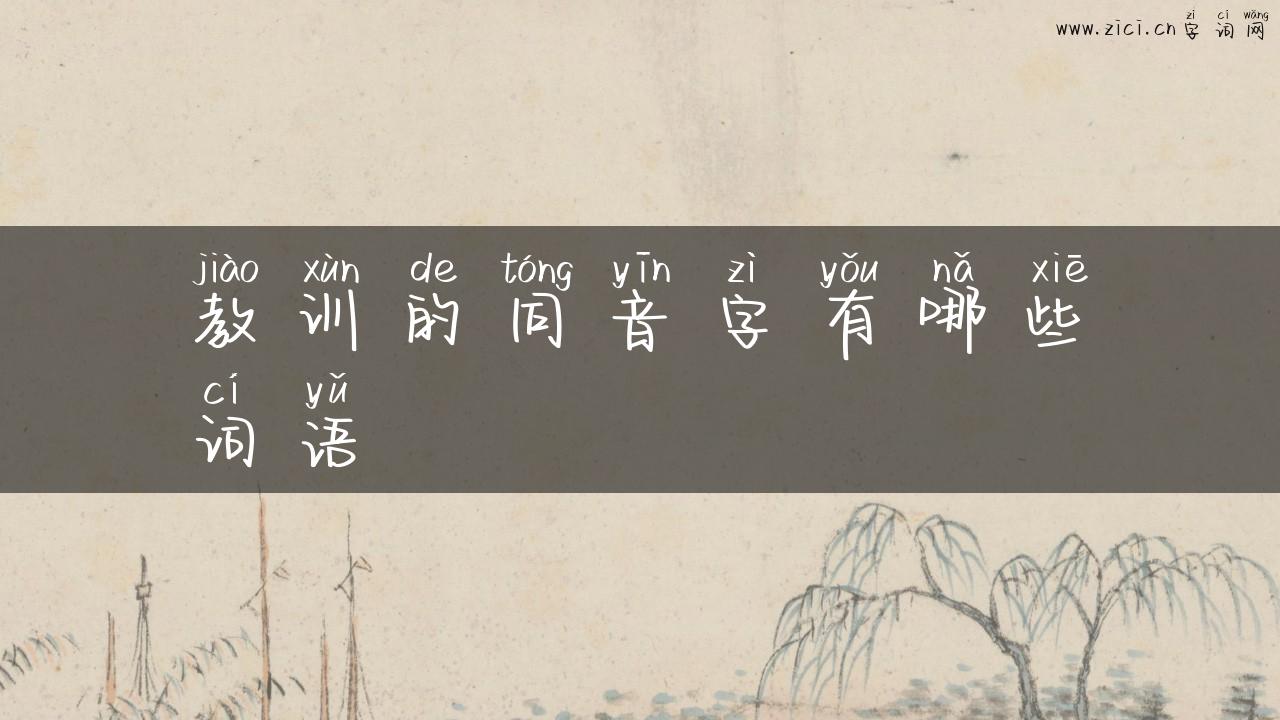 zì cí wǎng
www.zici.cn 字词网
jiào xùn de tóng yīn zì yǒu nǎ xiē
教训的同音字有哪些
cí yǔ
词语